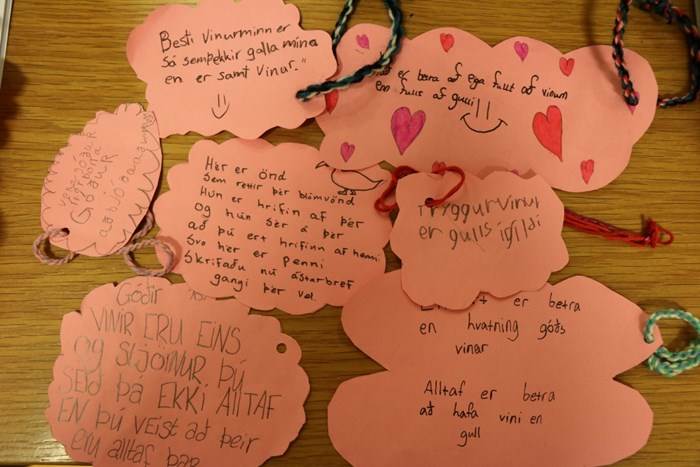 Besti vinurminn er
Sá sem þekkir galla mína
en er samt vinur."
er bara að ega fullt að vinum
en fullt af gulli!!
GÓÐUR
Hér er önd
Sem réttir þér blómvönd
Hún er hrifin af þér
og hún sér á þér
að þú ert hrifinn af henni
Svo hér er penni
Skrifaðu nú ástarbref
gangi þér vel.
Tryggurvinur
er gulls ígildi
Góðir
VINIR ERU EINS
og STJÖRNUR ÞÚ
SÉÐ ÞÁ EKKI ALLTAF
EN ÞÚ VEIST að þeir
eru alltaf þar
er betra
en hvatning góðs
vinar
Alltaf er betra
að hafa vini en
gull